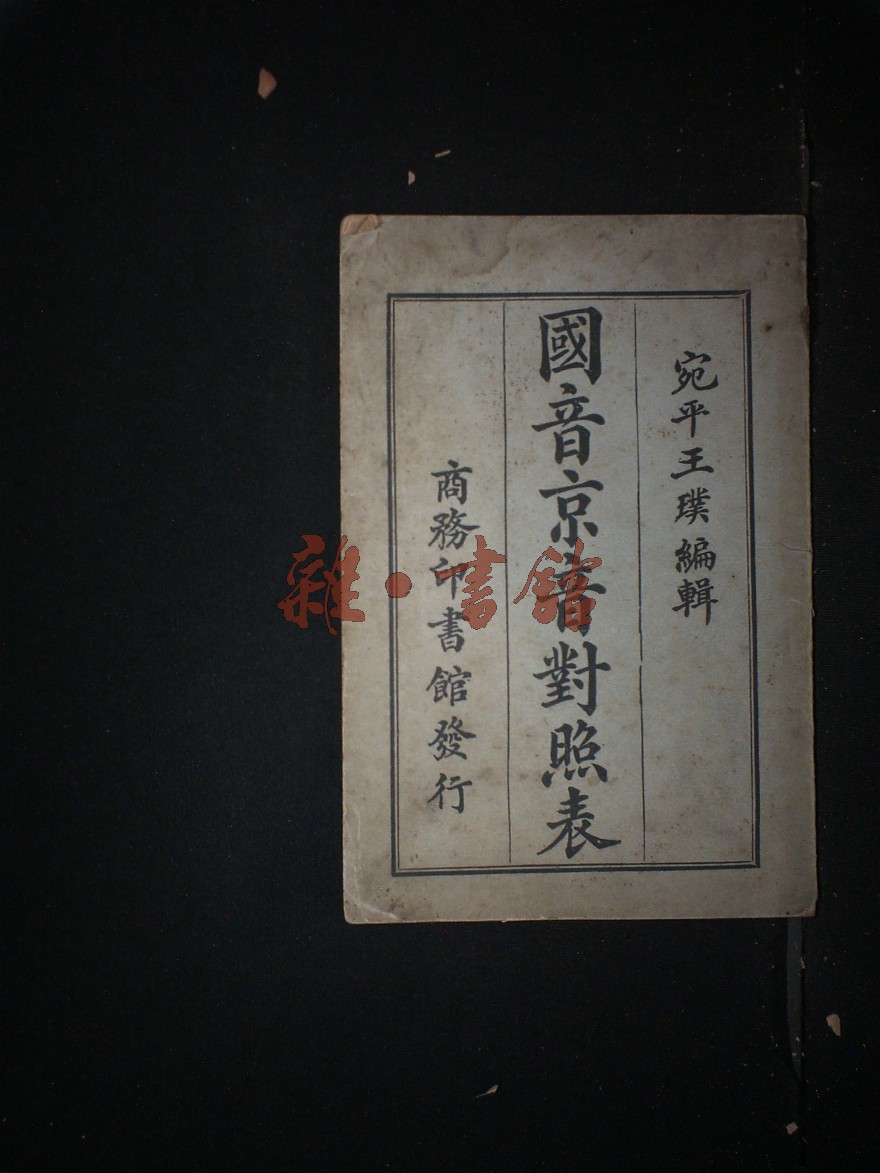 宛平王璞編輯
國音京音對照表
商務印書館發行
雜·書館